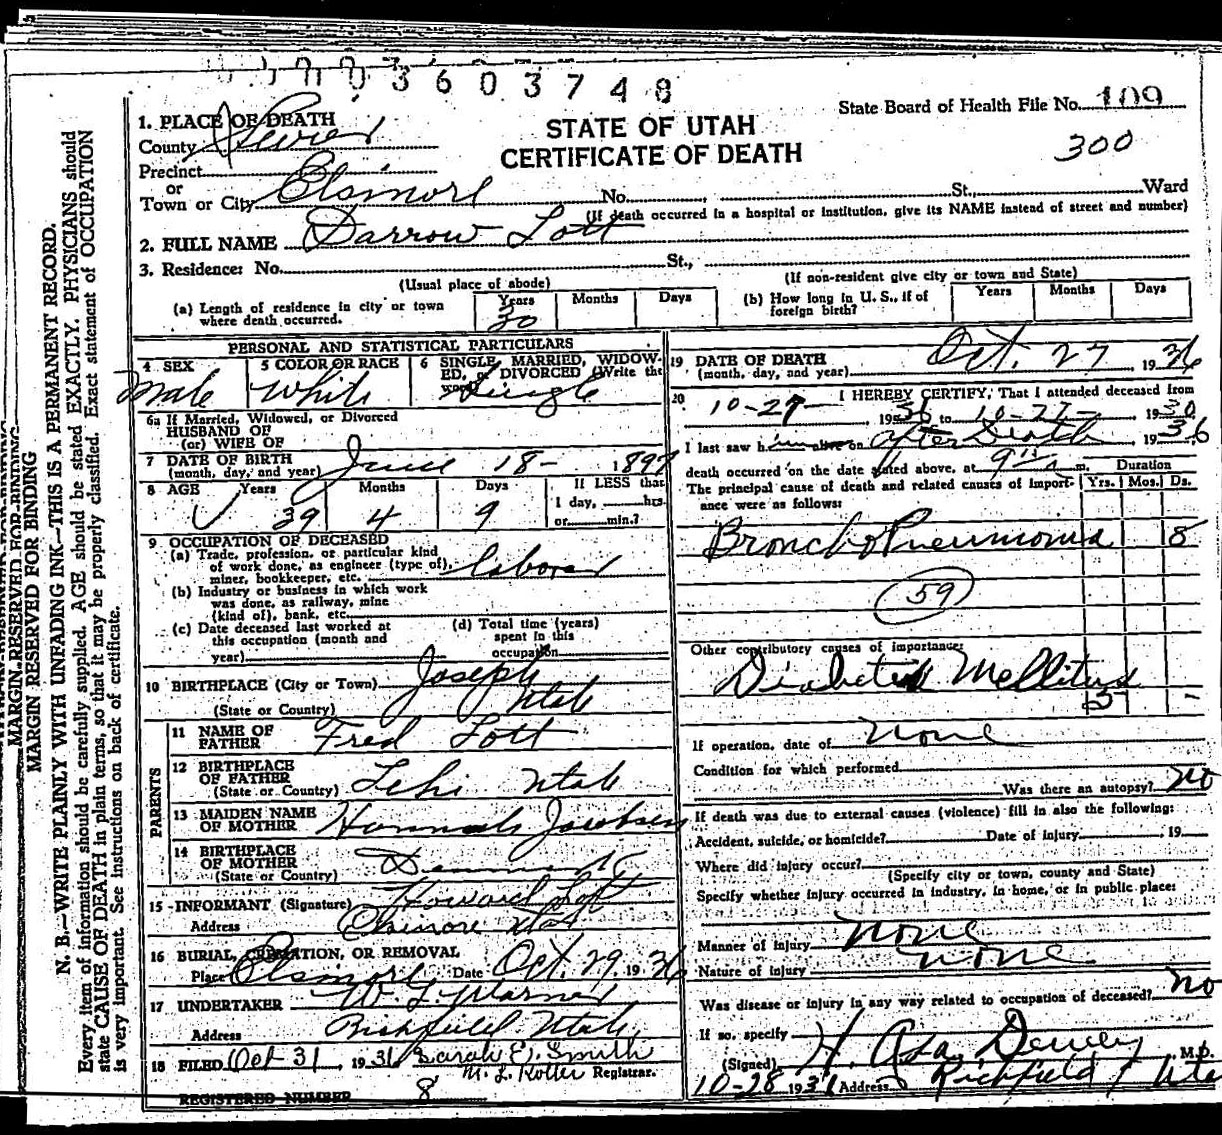 003603748
State Board of Health File No. 109
STATE OF UTAH
CERTIFICATE OF DEATH
300
1. PLACE OF DEATH
County Sevier
Precinct
or
Town or City Elsinore No. St., Ward
(If death occurred in a hospital or institution, give its NAME instead of street and number)
2. FULL NAME Darrow Lott
3. Residence: No. St.,
(Usual place of abode) (If non-resident give city or town and State)
(a) Length of residence in city or town where death occurred. Years 30 Months Days
(b) How long in U. S., if of foreign birth? Years Months Days
PERSONAL AND STATISTICAL PARTICULARS
4 SEX Male
5 COLOR OR RACE White
6 SINGLE, MARRIED, WIDOWED, or DIVORCED (Write the word) Single
6a If Married, Widowed, or Divorced
HUSBAND OF
(or) WIFE OF
7 DATE OF BIRTH
(month, day, and year) June 18- 1897
8 AGE Years 39 Months 4 Days 9 If LESS than
1 day, hrs.
or min.?
9 OCCUPATION OF DECEASED
(a) Trade, profession, or particular kind
of work done, as engineer (type of),
miner, bookkeeper, etc. laborer
(b) Industry or business in which work
was done, as railway, mine
(kind of), bank, etc.
(c) Date deceased last worked at
this occupation (month and
year)
(d) Total time (years)
spent in this
occupation
10 BIRTHPLACE (City or Town) Joseph
(State or Country) Utah
PARENTS
11 NAME OF
FATHER Fred Lott
12 BIRTHPLACE
OF FATHER
(State or Country) Lehi Utah
13 MAIDEN NAME
OF MOTHER Hannah Jacobsen
14 BIRTHPLACE
OF MOTHER
(State or Country) Denmark
15 INFORMANT (Signature) Howard Lott
Address Elsinore Utah
16 BURIAL, CREMATION, OR REMOVAL
Place Elsinore Date Oct. 29, 1936
17 UNDERTAKER
Address Richfield Utah
18 FILED Oct 31, 1936 Sarah E. Smith
Registrar.
REGISTERED NUMBER 8
19 DATE OF DEATH
(month, day, and year) Oct. 27, 1936
20 I HEREBY CERTIFY, That I attended deceased from
10-27-, 1936 to 10-27-, 1936
I last saw him alive on after Death, 1936
death occurred on the date stated above, at 9 m.
The principal cause of death and related causes of importance were as follows:
Duration
Yrs. Mos. Ds.
Broncho Pneumonia 8
59
Other contributory causes of importance:
Diabetes Mellitus
If operation, date of None
Condition for which performed
Was there an autopsy? No
If death was due to external causes (violence) fill in also the following:
Accident, suicide, or homicide? Date of injury 19
Where did injury occur?
(Specify city or town, county and State)
Specify whether injury occurred in industry, in home, or in public place:
Manner of injury None
Nature of injury None
Was disease or injury in any way related to occupation of deceased? No
If so, specify
(Signed) H. Asa Dewey, M.D.
10-28 1936 Address Richfield, Utah
MARGIN RESERVED FOR BINDING
N. B.—WRITE PLAINLY WITH UNFADING INK—THIS IS A PERMANENT RECORD.
Every item of information should be carefully supplied. AGE should be stated EXACTLY. PHYSICIANS should
state CAUSE OF DEATH in plain terms, so that it may be properly classified. Exact statement of OCCUPATION
is very important. See instructions on back of certificate.